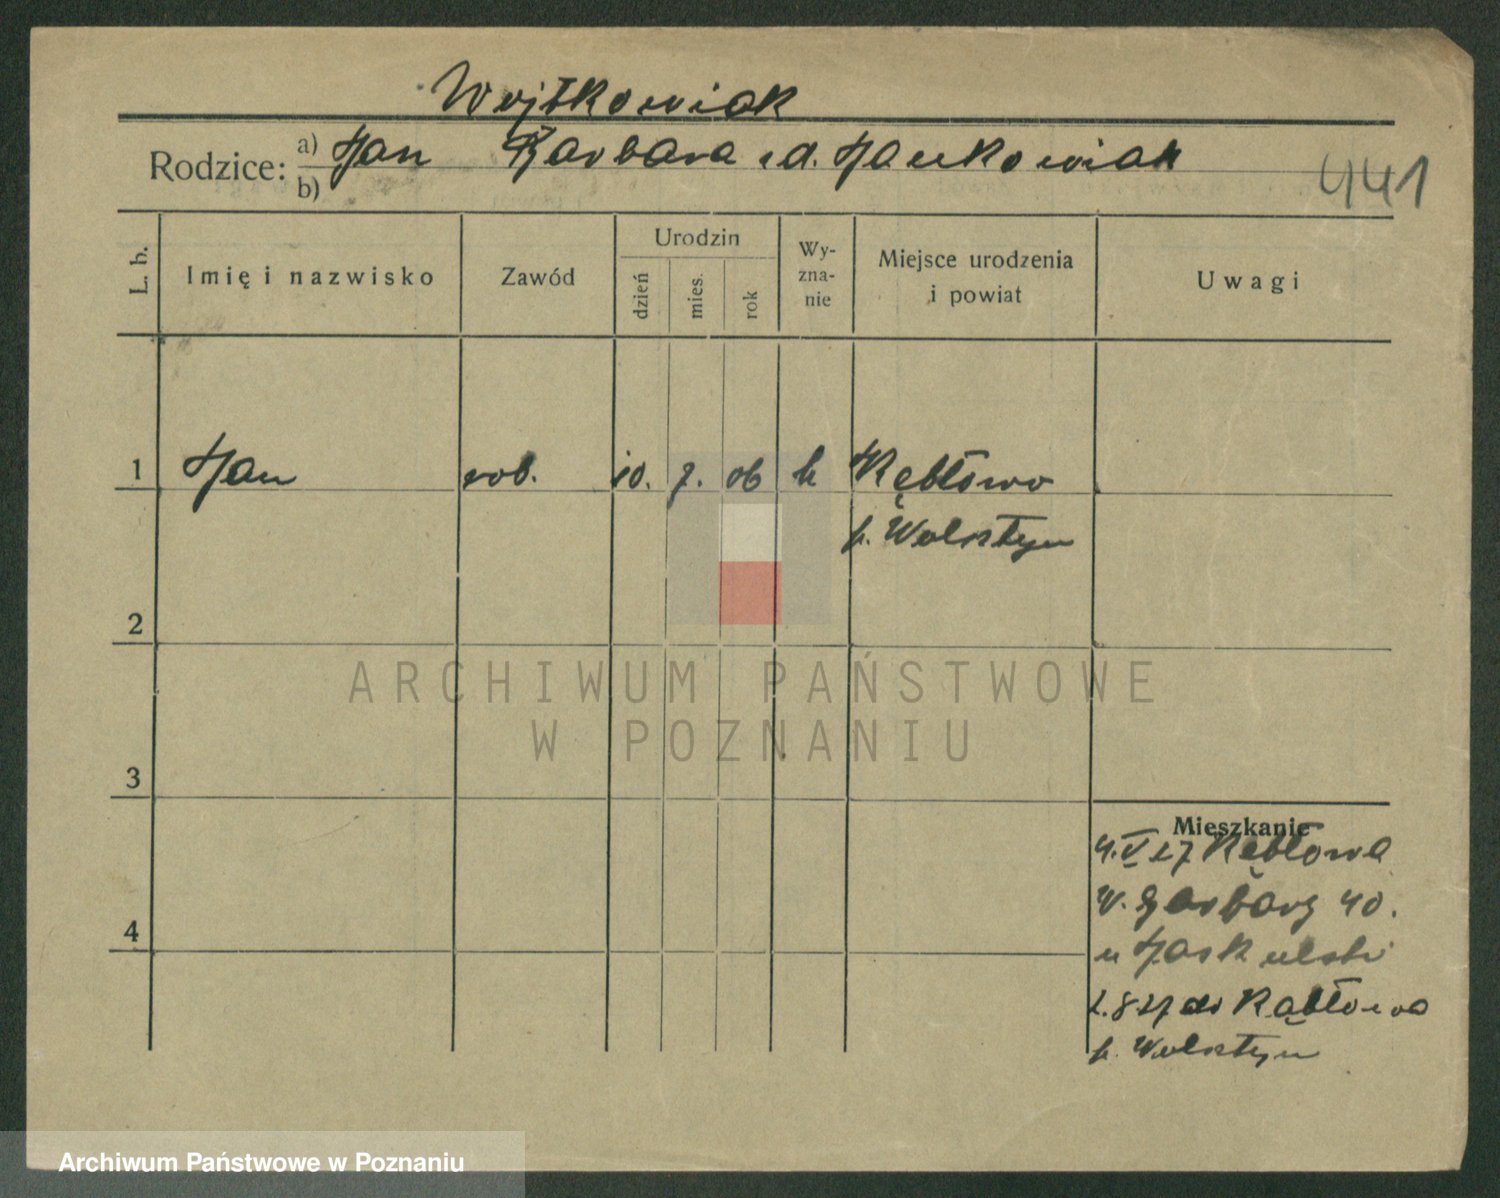 Wojtkowiak
Rodzice: a) Jan Barbara z d. Jankowiak
b)
441
L. b.
Imię i nazwisko
Zawód
Urodzin
dzień
mies.
rok
Wy-
zna-
nie
Miejsce urodzenia
i powiat
Uwagi
1 Jan rob. 10. 7. 06 k Kębłowo
p. Wolsztyn
2
ARCHIWUM PAŃSTWOWE
W POZNANIU
3
Mieszkanie
4. V 27 Kębłowa
W. Garbary 40.
4
u Jaskulski
2.8.27 do Kębłowa
p. Wolsztyn
Archiwum Państwowe w Poznaniu